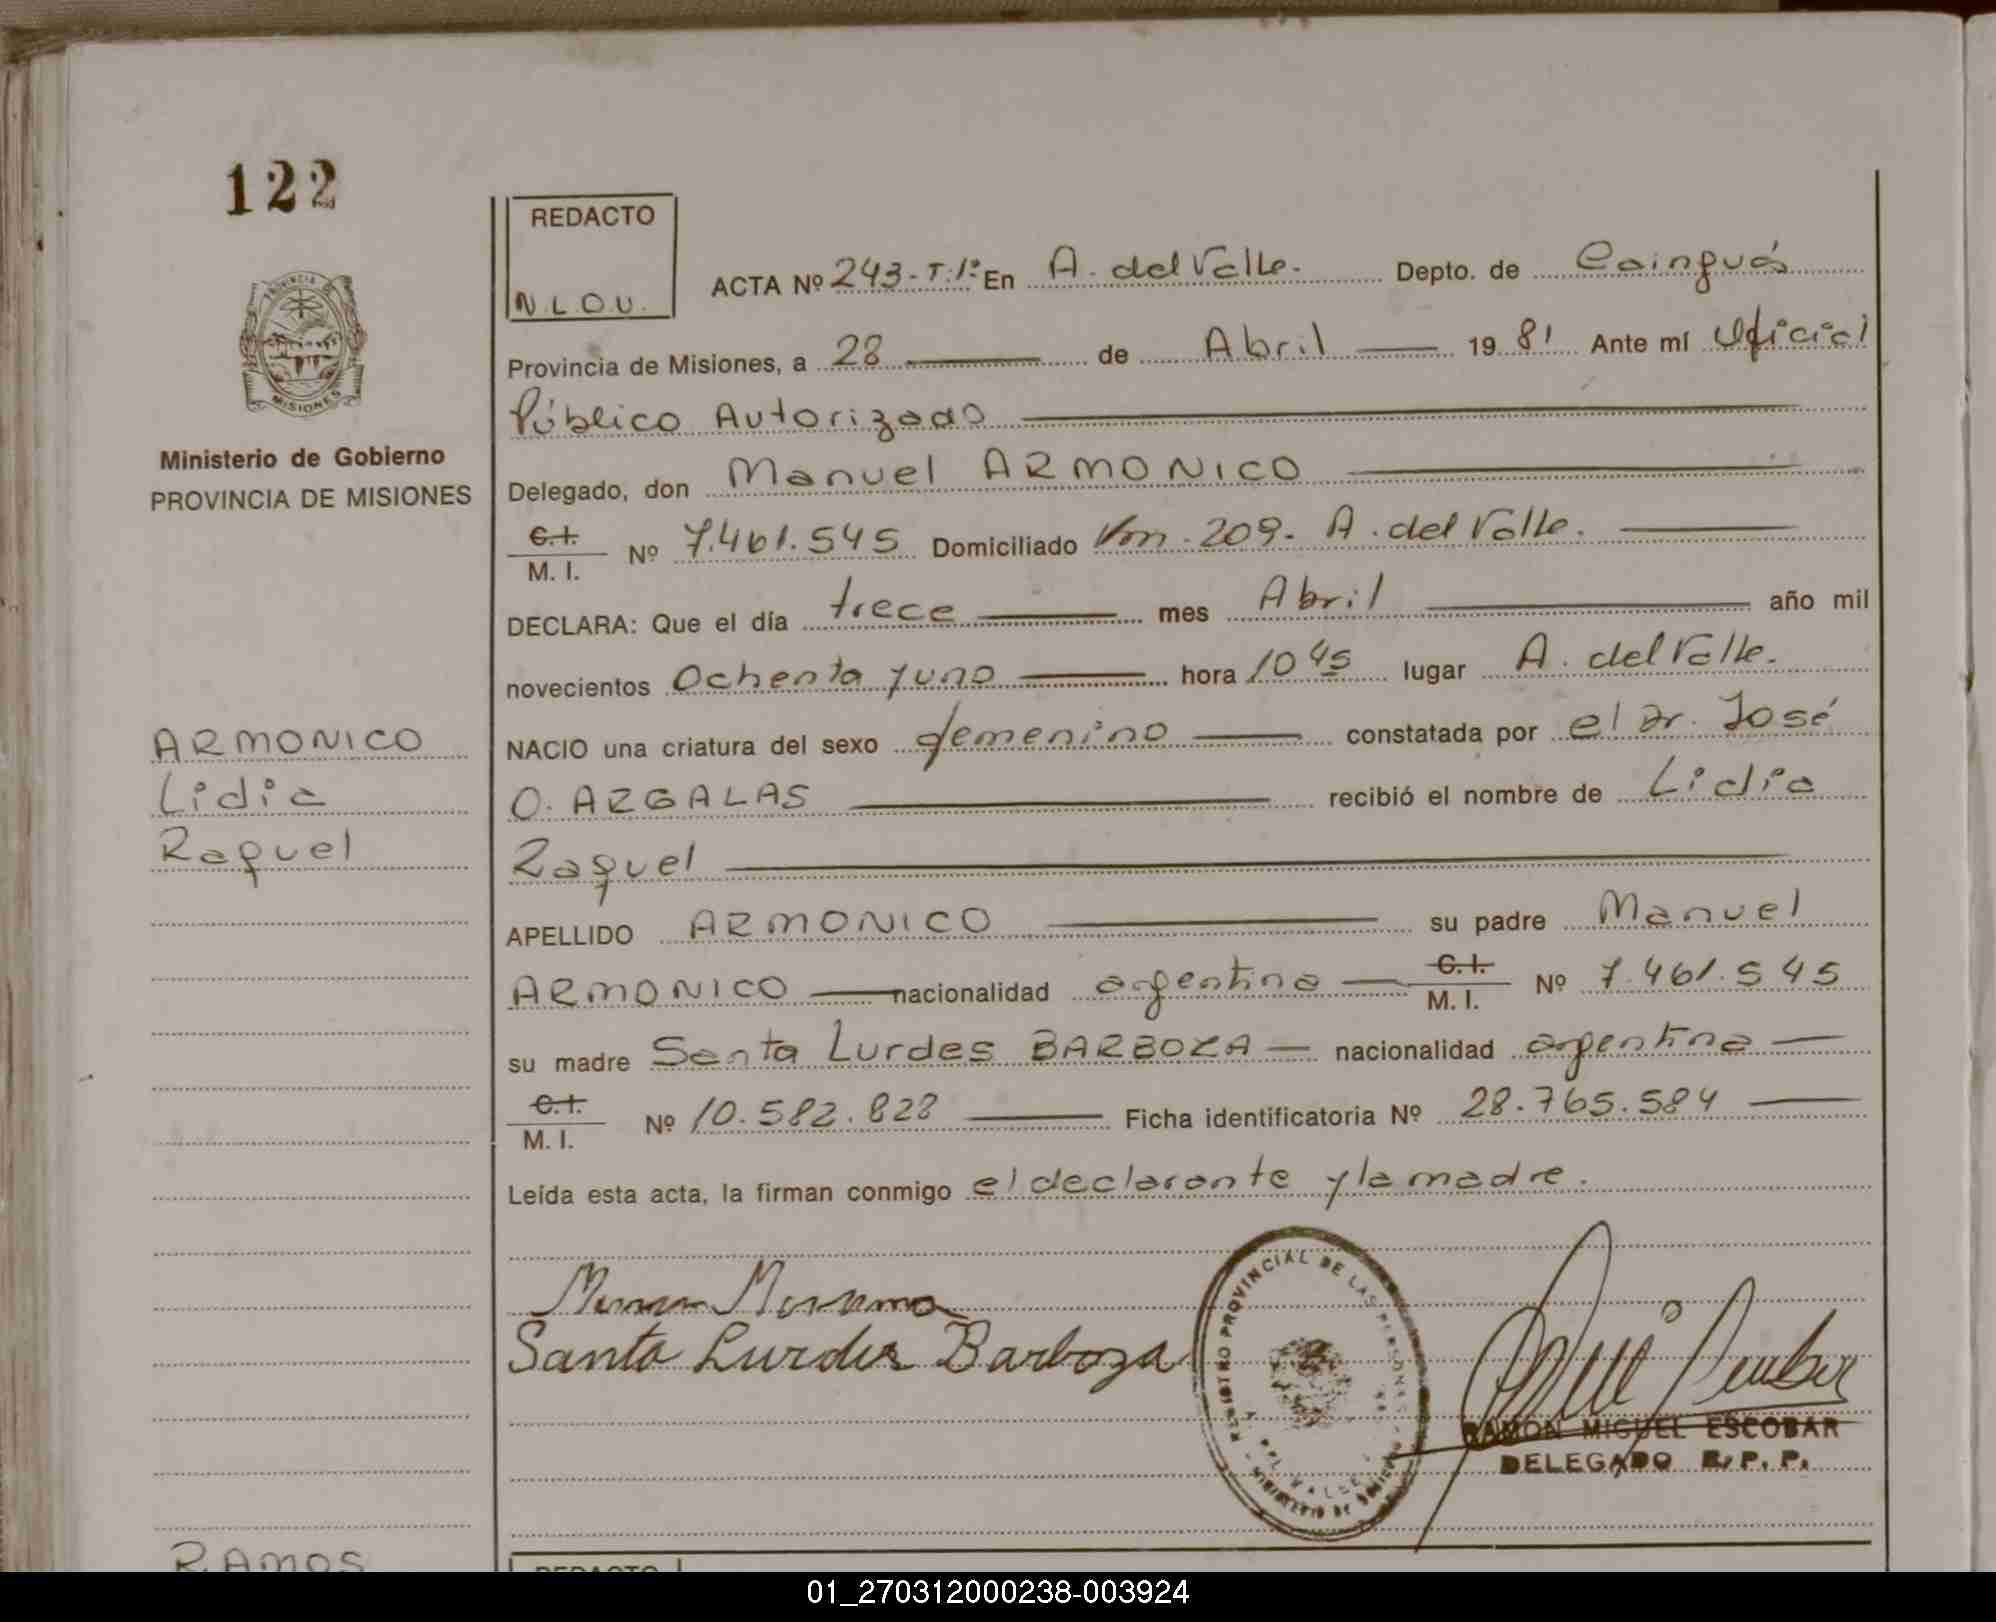 122
REDACTO
N.L.O.U.
ACTA Nº 243-T:1º En A. del Valle. Depto. de Cainguás
Provincia de Misiones, a 28 de Abril 1981 Ante mí Oficial
Público Autorizado
Ministerio de Gobierno
PROVINCIA DE MISIONES
Delegado, don Manuel ARMONICO
C.I.
M. I. Nº 7.461.545 Domiciliado Km. 209. A. del Valle.
DECLARA: Que el día trece mes Abril año mil
novecientos Ochenta y uno hora 10 45 lugar A. del Valle.
ARMONICO
Lidia
Raquel
NACIO una criatura del sexo femenino constatada por el Dr. José
O. ARGALAS recibió el nombre de Lidia
Raquel
APELLIDO ARMONICO su padre Manuel
ARMONICO nacionalidad argentina C.I. M. I. Nº 7.461.545
su madre Santa Lurdes BARBOZA nacionalidad argentina
C.I.
M. I. Nº 10.582.828 Ficha identificatoria Nº 28.765.584
Leída esta acta, la firman conmigo el declarante y la madre.
Santa Lurdes Barboza
REGISTRO PROVINCIAL DE LAS PERSONAS
RAMON MIGUEL ESCOBAR
DELEGADO R. P. P.
RAMOS
REDACTO
01_270312000238-003924